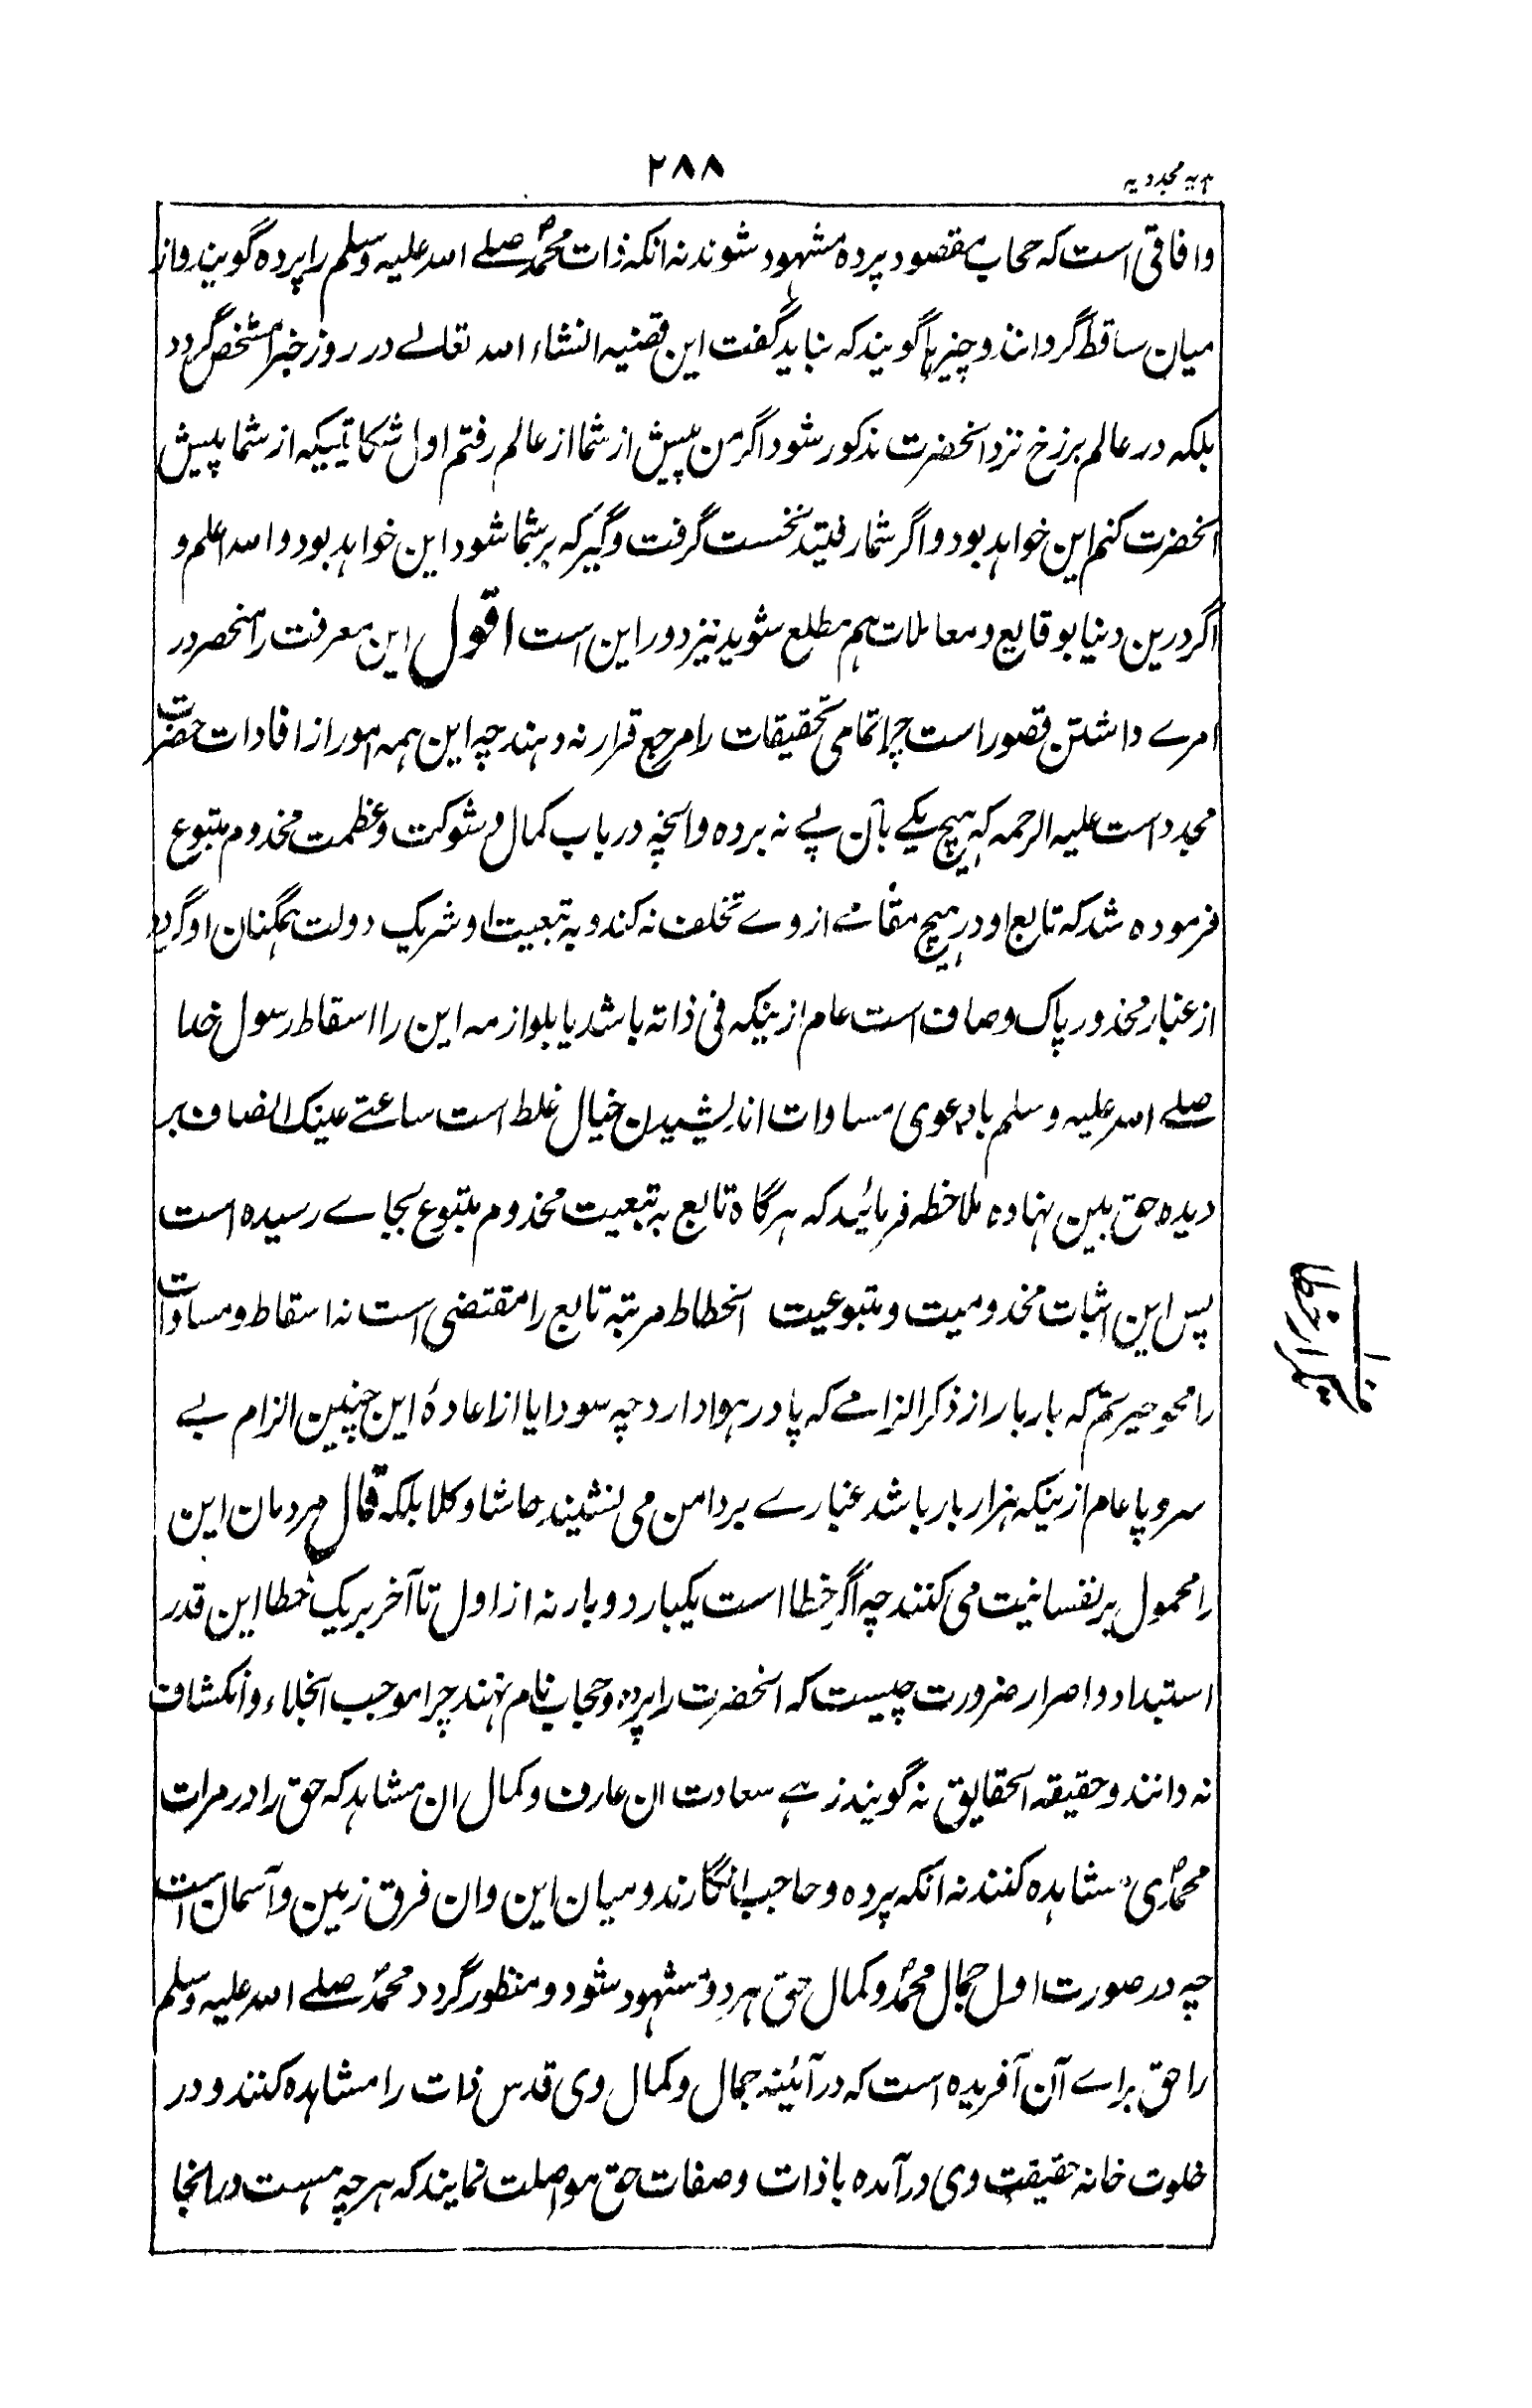 ۲۸۸
یہ مجددیہ
وافاقی است کہ حجاب مقصود پردہ مشہود شوند نہ انکہ ذات محمدؐ صلے اللہ علیہ وسلم را پردہ گویند و از
میان ساقط گردانند و چیزہا گویند کہ نباید گفت این قضیہ انشاء اللہ تعالے در روز جزا مشخص گردد
بلکہ در عالم برزخ نزد انحضرت مذکور شود اگر من پیش از شما از عالم رفتم اول شکایتیکہ از شما پیش
انحضرت کنم این خواہد بود و اگر شما رفتید نخست گرفت و گیر کہ بر شما شود این خواہد بود و اللہ اعلم و
اگر درین دنیا بوقایع و معاملات ہم مطلع شوید نیز دور این است اقول این معرفت را منحصر در
امرے داشتن قصور است چرا تمامی تحقیقات را مرجع قرار نہ دہند چہ این ہمہ امور از افادات حضرت
مجدد است علیہ الرحمہ کہ ہیچ یکے بآن پے نہ بردہ و آنچہ در باب کمال و شوکت و عظمت مخدوم متبوع
فرمودہ شد کہ تابع او در ہیچ مقامے از وے تخلف نہ کند و بہ تبعیت او شریک دولت ہمگنان او گردد
از غبار محذور پاک و صاف است عام ازینکہ فی ذاتہ باشد یا بلوازمہ این را اسقاط رسول خدا
صلے اللہ علیہ وسلم با دعوی مساوات اندیشیدن خیال غلط است ساعتے عینک انصاف بر
دیدہ حق بین نہادہ ملاحظہ فرمائید کہ ہرگاہ تابع بہ تبعیت مخدوم متبوع بجاے رسیدہ است
پس این اثبات مخدومیت و متبوعیت انحطاط مرتبہ تابع را مقتضی است نہ اسقاط و مساوات
را محو حیرتم کہ بار بار از ذکر الزامے کہ پا در ہوا دارد چہ سود ایا از اعادۂ این چنین الزام بے
سر و پا عام ازینکہ ہزار بار باشد غبارے بر دامن می نشیند حاشا و کلا بلکہ قال مردمان این
را محمول بر نفسانیت می کنند چہ اگر خطا است یکبار دو بار نہ از اول تا آخر بر یک خطا این قدر
استبداد و اصرار ضرورت چیست کہ انحضرت را پردہ و حجاب نام نہند چرا موجب انجلاء و انکشاف
نہ دانند و حقیقہ الحقایق نہ گویند زہے سعادت ان عارف و کمال ان مشاہد کہ حق را در مرات
محمدیؐ مشاہدہ کنند نہ آنکہ پردہ و حاجب انگارند و میان این و ان فرق زمین و آسمان است
چہ در صورت اول جمال محمدؐ و کمال حق ہر دو مشہود شود و منظور گردد محمدؐ صلے اللہ علیہ وسلم
را حق براے آن آفریدہ است کہ در آئینہ جمال و کمال وی قدس ذات را مشاہدہ کنند و در
خلوت خانہ حقیقت وی در آمدہ با ذات و صفات حق مواصلت نمایند کہ ہر چہ ہست در انجا
تکرار خطا